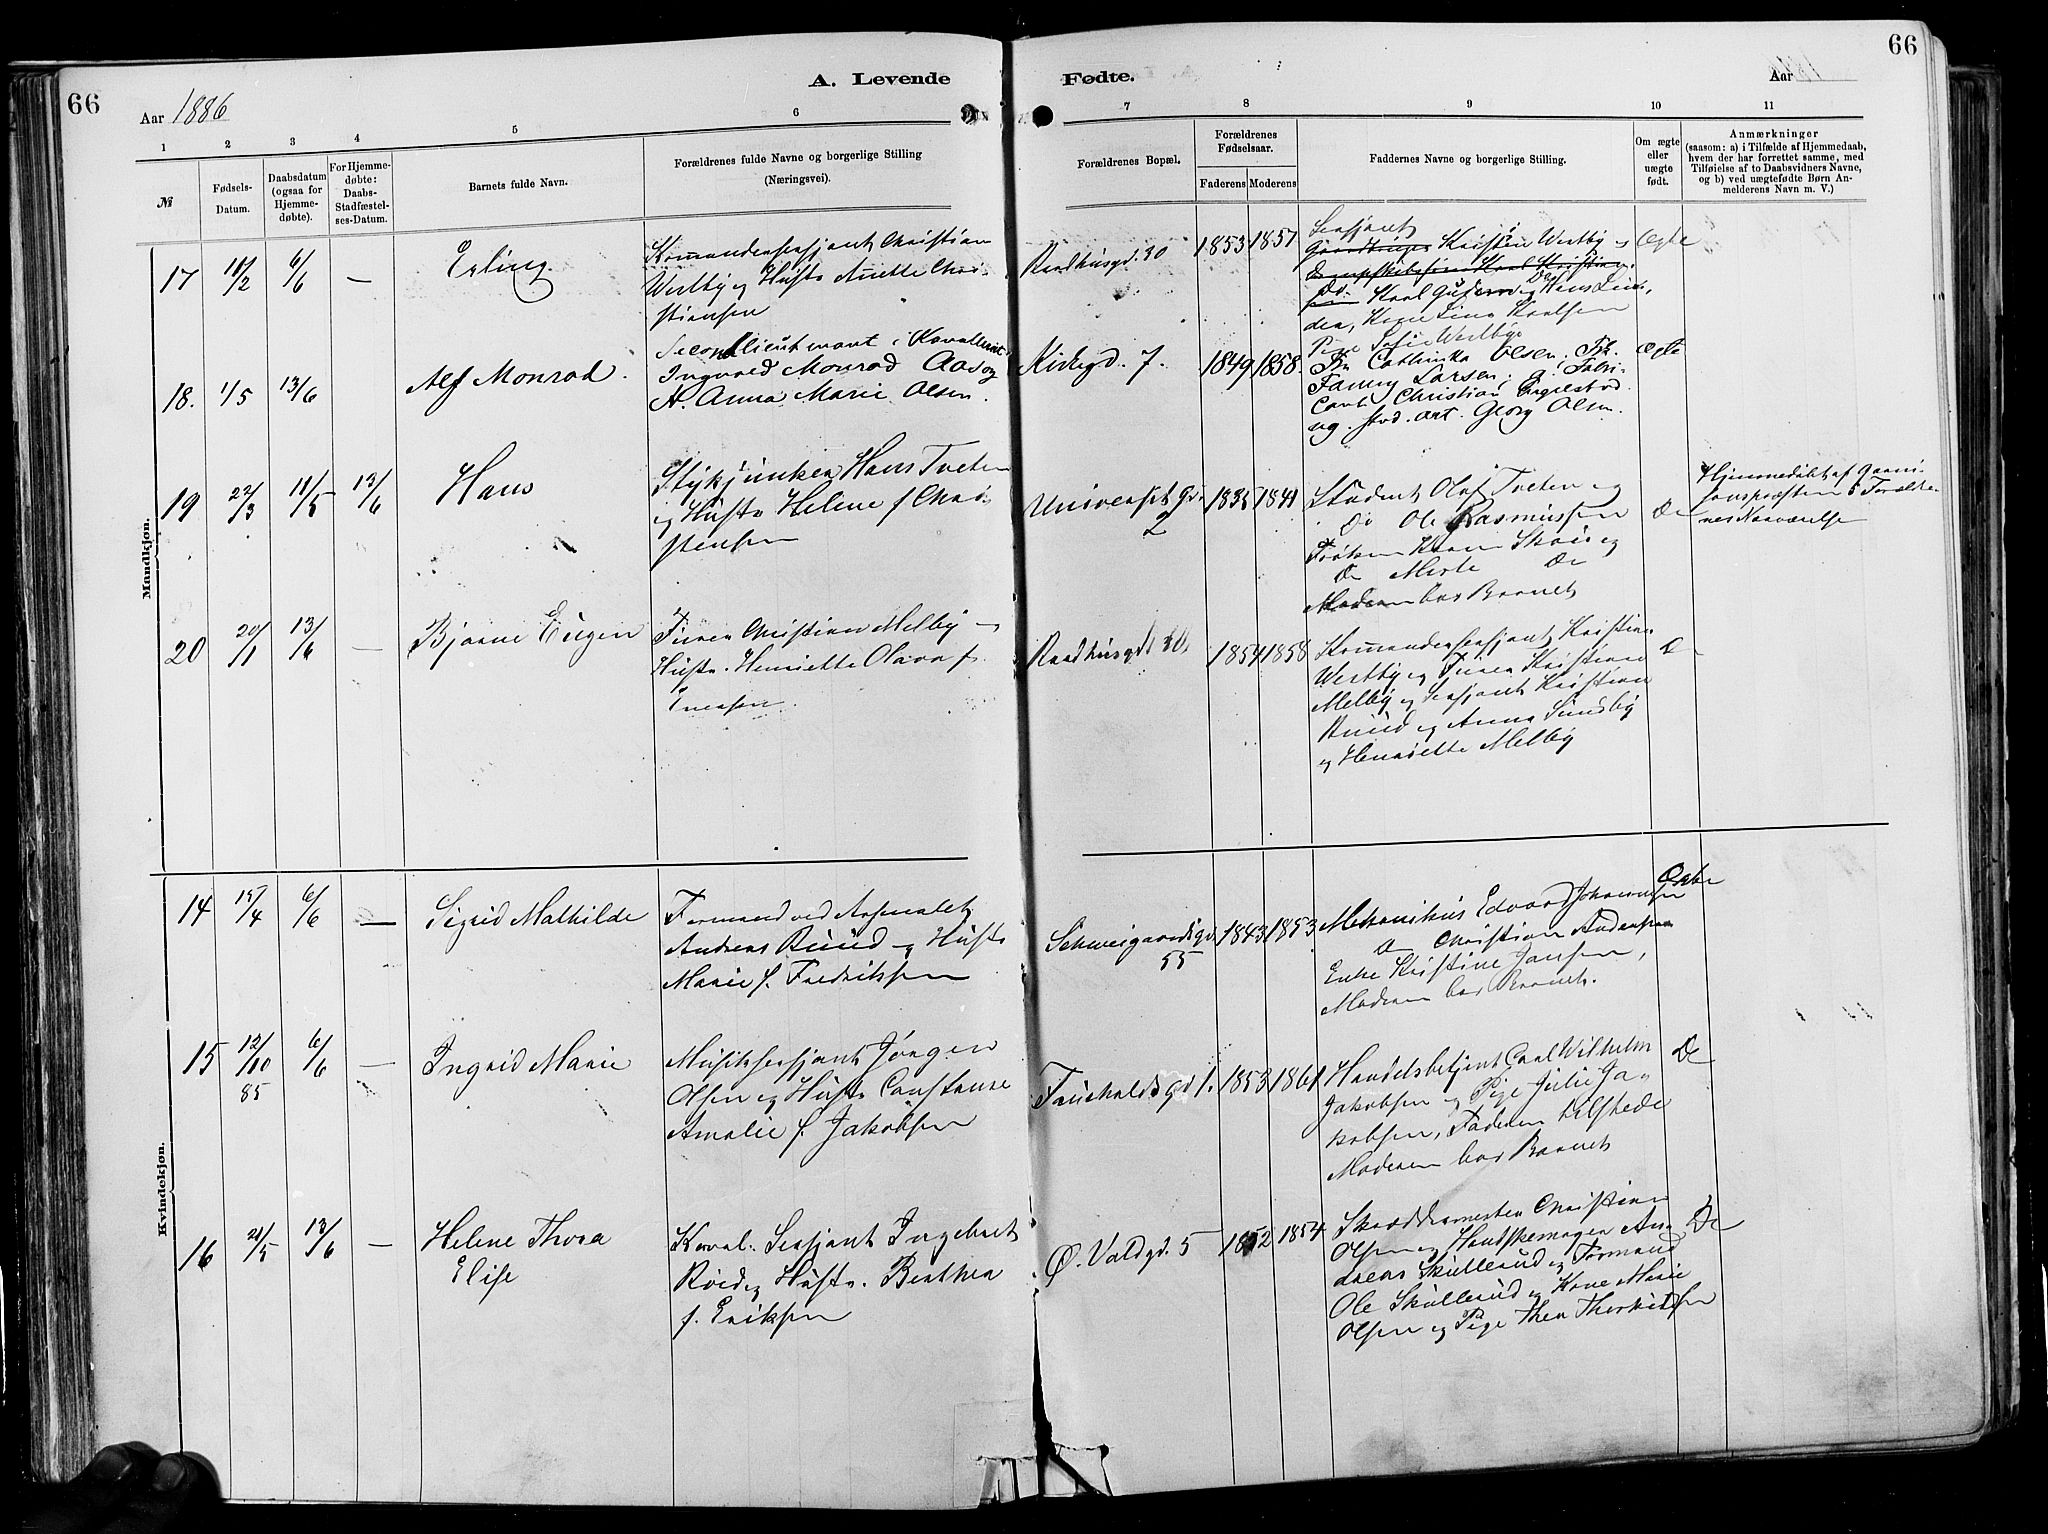 66
A. Levende
Aar 1886
1 2 3 4 5 6
№
Fødsels-
Datum.
Daabsdatum
(ogsaa for
Hjemme-
døbte).
For Hjemme-
døbte:
Daabs-
Stadfæstel-
ses-Datum.
Barnets fulde Navn.
Forældrenes fulde Navne og borgerlige Stilling
(Næringsvei).
Fødte.
66
Aar
7 8 9 10 11
Forældrenes Bopæl.
Forældrenes
Fødselsaar.
Faderens Moderens
Faddernes Navne og borgerlige Stilling.
Om ægte
eller
uægte
født.
Anmærkninger
(saasom: a) i Tilfælde af Hjemmedaab,
hvem der har forrettet samme, med
Tilføielse af to Daabsvidners Navne,
og b) ved uægtefødte Børn An-
melderens Navn m. V.)
Mandkjøn.
17 11/2 6/6 — Erling
Komandersersjant Christian
Westby og Hustr Anette Chri-
stiansen
Raadhusgd. 30
1853 1857
Sersjant
Kristen Westby
Karl Hans Lin-
den, Kone Lina Karlsen
Pige Sofie Westbye
Ægte
18. 1/5 13/6 Alf Monrad.
Secondlieutenant i Kavalleriet
Ingvald Monrad Aas og
H. Anna Marie Olsen.
Kirkegd. 7.
1849 1858.
Fru Cathinka Olsen, Frk.
Fanny Larsen, Fabri-
Cant Christian Engelstad
og stud. art. Georg Olsen.
Ægte
19 22/3 11/5 13/6 Hans
Stykjunker Hans Tveten
og Hustr Helene f Chri-
stensen
Universit. gd.
2
1835 1841
Student Olaf Tveten og
do Ole Rasmussen
Frøken Karen og
De Merle De
Moderen bar Barnet
De
Hjemmedøbt af Garni-
sonspræsten i Foreldre-
nes Nærværelse
20 20/1 13/6 — Bjarne Eugen
Furer Christian Melby
Hustr. Henriette Olava f.
Iversen
Raadhusgd 30.
1854 1858
Komandersersjant Kristian
Westby og Furer Kristian
Melby og Sersjant Kristian
Ruud og Anna Sundby
og Henriette Melby
Kvindekjøn.
14 15/4 6/6 — Sigrid Mathilde
Formand ved Arsenalet
Andreas Ruud og Hustr
Marie f. Fredriksen
Schweigaardsgd.
55
1843 1853
Mekanikus Edvard Johannesen
Christian Andersen
Enke Kristine Jansen,
Moderen bar Barnet.
Ægte
15 12/10 6/6 — Ingrid Marie
85
Musiksersjant Jørgen
Olsen og Hustr Constanse
Amalie f. Jakobsen
Faucholdsgd 1.
1853 1861
Handelsbetjent Carl Wilhelm
Jakobsen og Pige Julie Ja-
kobsen, Faderen tilstede
Moderen bar Barnet
De
16 21/5 13/6 — Helene Thora
Elise
Kaval. Sersjant Ingebret
Røed og Hustr. Berthea
f. Eriksen
Ø. Voldgd. 5
1852 1854
Skræddermester Christian
Olsen og Handskemager An-
dreas Skullerud og Formand
Ole Skullerud og Kone Marie
Olsen og Pige Thea Therkildsen
De